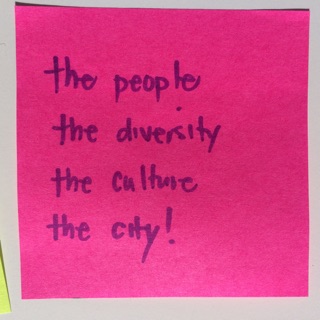 the people
the diversity
the culture
the city!